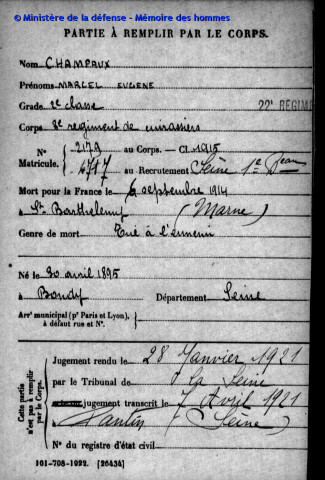 © Ministère de la défense - Mémoire des hommes
PARTIE À REMPLIR PAR LE CORPS.
Nom CHAMPAUX
Prénoms MARCEL EUGENE
Grade 2e classe
22e RÉGIME
Corps 8e regiment de cuirassiers
N° 2179 au Corps. — Cl. 1915
Matricule. 4717 au Recrutement Seine 1er Bean
Mort pour la France le 6 septembre 1914
à St Barthelemy (Marne)
Genre de mort Tué à l'ennemi
Né le 20 avril 1895
à Bondy Département Seine
Arrt municipal (pr Paris et Lyon),
à défaut rue et N°.
Cette partie
n'est pas à remplir
par le Corps.
Jugement rendu le 28 Janvier 1921
par le Tribunal de la Seine
jugement transcrit le 7 Avril 1921
à Pantin (Seine)
N° du registre d'état civil
101-708-1922. [26434]